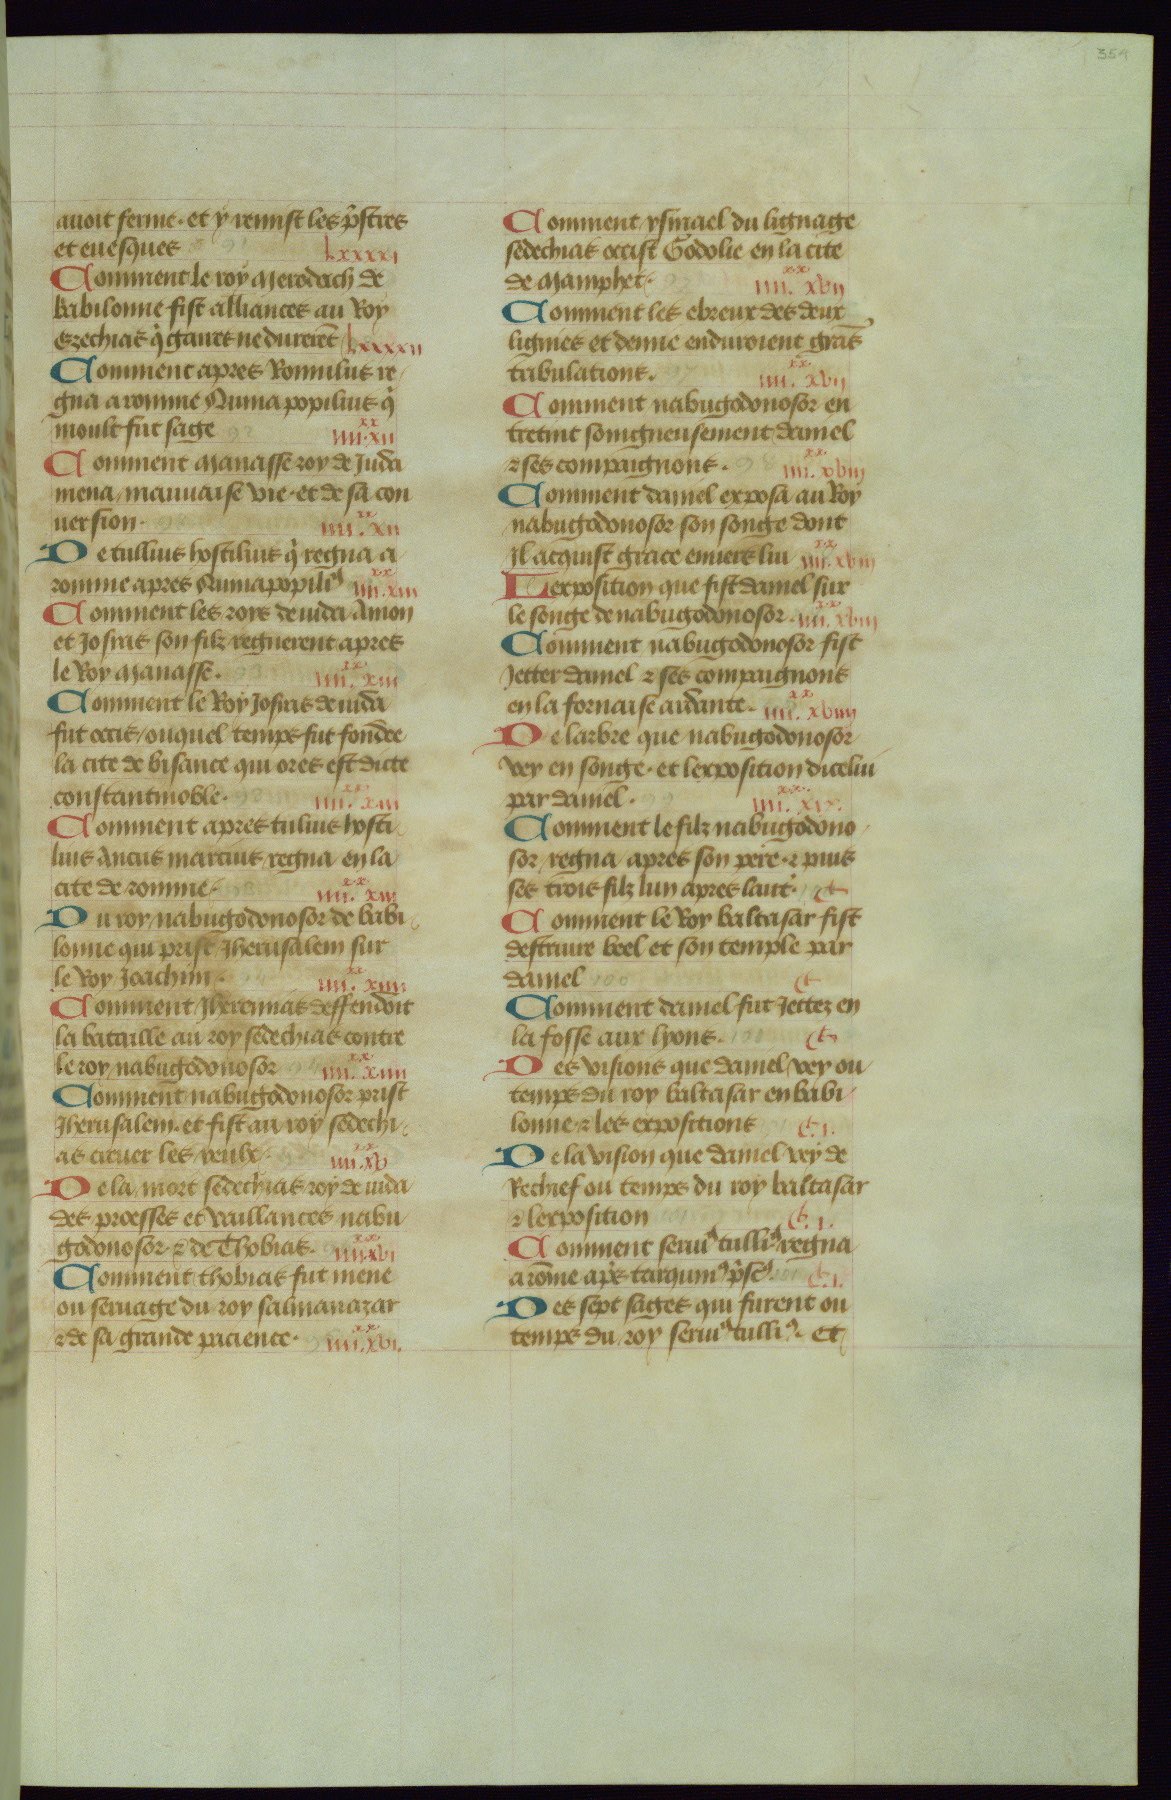 359
auoit ferme · et y remist les p̃stres
et euesques lxxxxi
Comment le roy Merodach de
babilonne fist alliances au Roy
Ezechias q̃ gaires ne durerẽt lxxxxii
Comment apres Romulus re/
gna a romme Numa popilius q̃
moult fut sage iiii.xx xii
Comment Manasse roy de Juda
mena mauuaise vie · et de sa con
uersion · iiii.xx xii
De tullius hostilius q̃ regna a
romme apres Numa popili⁹ iiii.xx xiii
Comment les roys de iuda Amon
et Josias son filz regnerent apres
le Roy Manasse · iiii.xx xiii
Comment le Roy Josias de iuda
fut occis / ouquel temps fut fondee
la cite de bisance qui ores est dicte
constantinoble · iiii.xx xiii
Comment apres tulius hosti/
lius Ancus marcius regna en la
cite de romme · iiii.xx xiii
Du roy nabugodonosor de babi/
lonne qui prist Jherusalem sur
le Roy Joachim · iiii.xx xiiii
Comment Jheremias deffendoit
la bataille au roy sedechias contre
le roy nabugodonosor iiii.xx xiiii
Comment nabugodonosor prist
Jherusalem · et fist au roy sedechi/
as creuer les yeulx · iiii.xx xv
De la mort sedechias roy de iuda
des proesses et vaillances nabu
godonosor · ⁊ de Thobias · iiii.xx xvi
Comment thobias fut mene
ou seruage du roy salmanazar
⁊ de sa grande pacience · iiii.xx xvi.
Comment ysmael du lignage
sedechias occist Godolie en la cite
de Mamphet · iiii.xx xvii
Comment les ebreux des deux
lignies et demie enduroient grãs
tribulations · iiii.xx xvii
Comment nabugodonosor en
tretint soingneusement daniel
⁊ ses compaignons · 98 iiii.xx xviii
Comment daniel exposa au Roy
nabugodonosor son songe dont
Il acquist grace enuers lui iiii.xx xviii
Lexposition que fist daniel sur
le songe de nabugodonosor · iiii.xx xviii
Comment nabugodonosor fist
Jetter daniel ⁊ ses compaignons
en la fornaise ardante · iiii.xx xviiii
De larbre que nabugodonosor
vey en songe · et lexposition dicelui
par daniel · 99 iiii.xx xix.
Comment le filz nabugodono/
sor regna apres son pere · ⁊ puis
ses trois filz lun apres laut̃ · C
Comment le Roy baltasar fist
destruire beel et son temple par
daniel 100 C
Comment daniel fut Jettez en
la fosse aux lyons · C
Des visions que daniel vey ou
temps du roy baltasar en babi/
lonne ⁊ les expositions C.i.
De la vision que daniel vey de
Rechief ou temps du roy baltasar
⁊ lexposition C.i.
Comment seruiꝰ tulliꝰ regna
a rõme ap̃s tarquinꝰ p̃scꝰ · C.i.
Des sept sages qui furent ou
temps du roy seruiꝰ tulliꝰ · Et